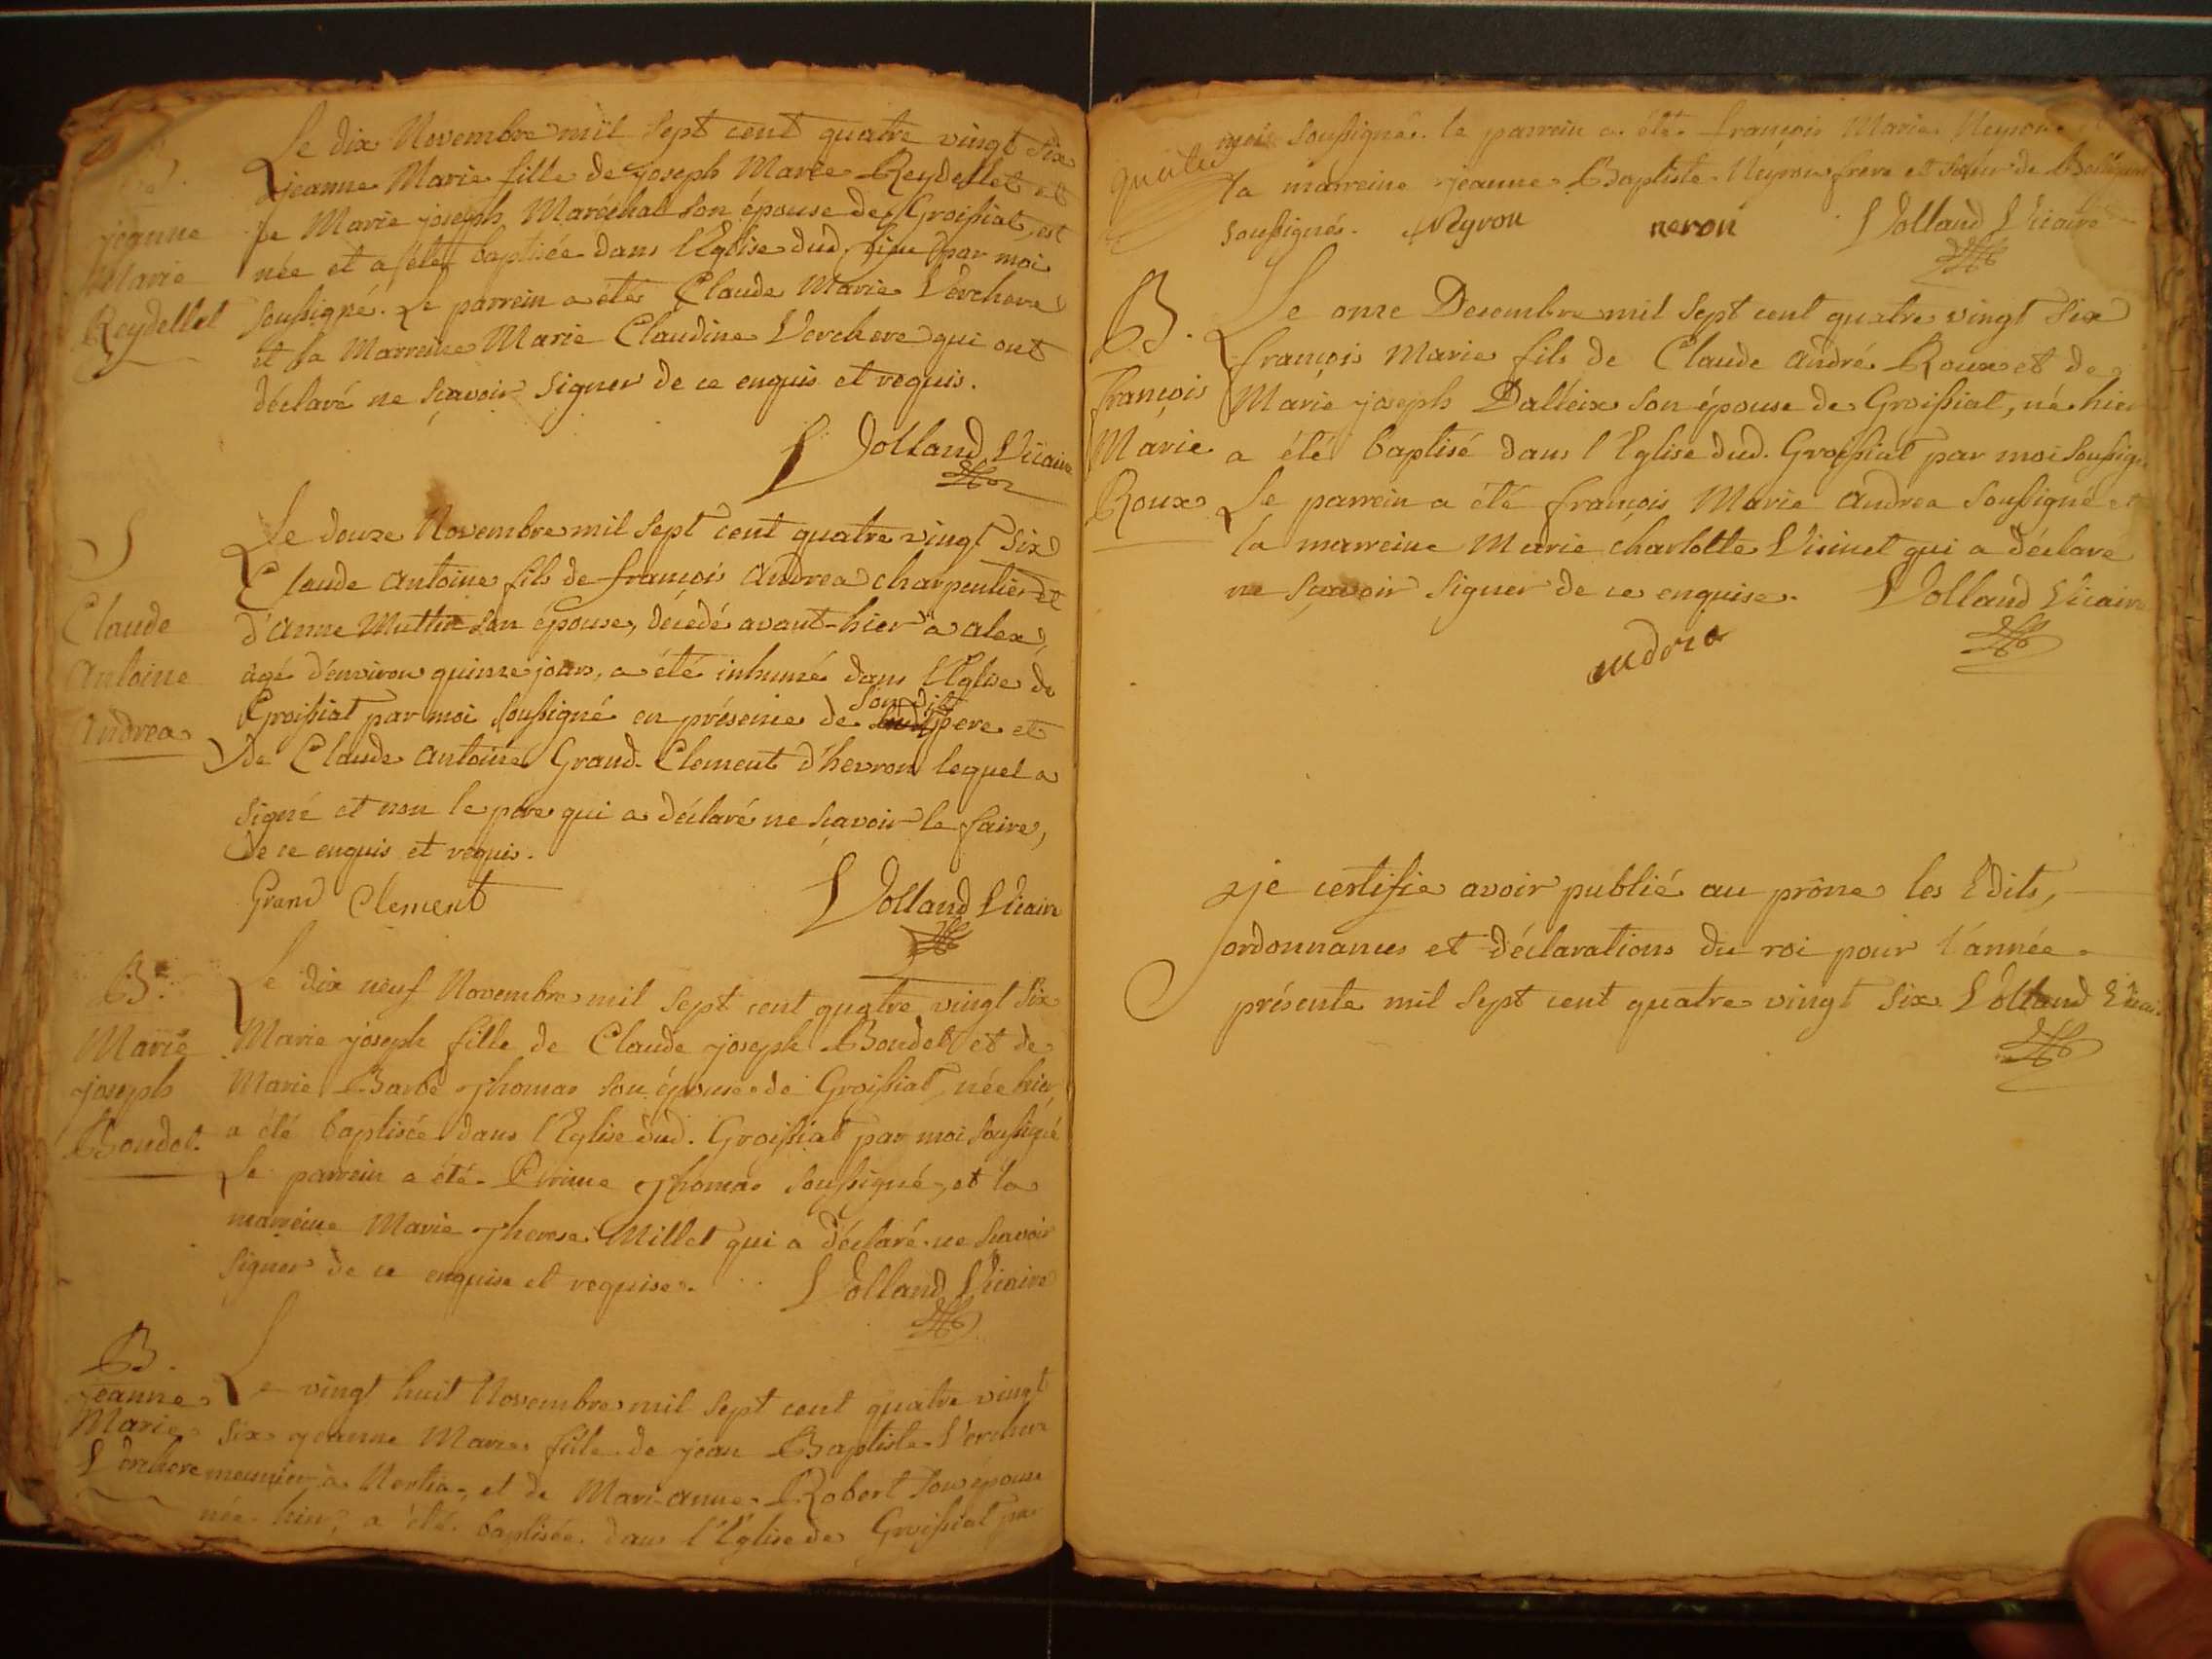 Le dix Novembre mil sept cent quatre vingt six
jeanne Marie fille de joseph Marie Reydellet et
de Marie joseph Maréchal son épouse de Groissiat, est
née et a été baptisée dans l'Eglise dud. lieu par moi
soussigné. Le parrein a été Claude Marie Verchere
et la Marreine Marie Claudine Verchere qui ont
déclaré ne sçavoir signer de ce enquis et requis.
Volland Vicaire
jeanne
Marie
Reydellet
Le douze Novembre mil sept cent quatre vingt six
Claude antoine fils de françois andrea charpentier et
d'anne Muthin son épouse, décédé avant-hier à alex,
agé d'environ quinze jours, a été inhumé dans l'Eglise de
son dit
Groissiat par moi soussigné en présence de père et
de Claude antoine Grand-Clement d'hevron lequel a
signé et non le père qui a déclaré ne sçavoir le faire,
de ce enquis et requis.
Grand Clement Volland Vicaire
S
Claude
antoine
andrea
Le dix neuf Novembre mil sept cent quatre vingt six
Marie joseph fille de Claude joseph Boudet et de
Marie Barbe Thomas son épouse de Groissiat, née hier
a été baptisée dans l'Eglise dud. Groissiat par moi soussigné
Le parrein a été Thomas soussigné, et la
marreine Marie Therese Millet qui a déclaré ne sçavoir
signer de ce enquise et requise. Volland Vicaire
B.
Marie
joseph
Boudet.
Le vingt huit Novembre mil sept cent quatre vingt
six jeanne Marie fille de jean Baptiste Verchere
meunier à Nertia, et de Marianne Robert son épouse
née hier, a été baptisée dans l'Eglise de Groissiat par
B.
jeanne
Marie
Verchere
moi soussigné. le parrein a été françois Marie Neyron
la marreine jeanne Baptiste Neyron frere et sœur de
soussignés. Neyron neron Volland Vicaire
Le onze Decembre mil sept cent quatre vingt six
françois Marie fils de Claude andré Roux et de
Marie joseph Dalleix son épouse de Groissiat, né hier
a été baptisé dans l'Eglise dud. Groissiat par moi soussigné
Le parrein a été françois Marie andrea soussigné et
la marreine Marie charlotte Visinet qui a déclaré
ne sçavoir signer de ce enquise. Volland Vicaire
andrea
B.
françois
Marie
Roux
je certifie avoir publié au prône les Edits,
ordonnances et déclarations du roi pour l'année
présente mil sept cent quatre vingt six. Volland Vicai